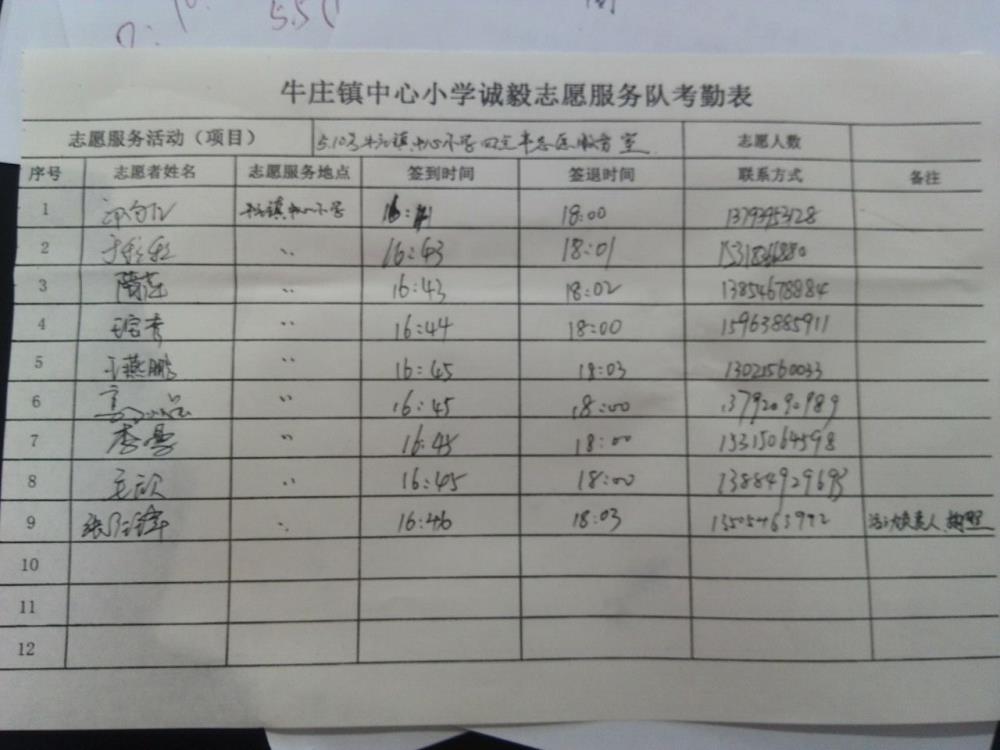 5.5
牛庄镇中心小学诚毅志愿服务队考勤表
志愿服务活动（项目） 5.10 牛庄镇中心小学 志愿服务 室 志愿人数
序号 志愿者姓名 志愿服务地点 签到时间 签退时间 联系方式 备注
1 牛庄镇中心小学 18:00
2 〃 16:43 18:01
3 〃 16:43 18:02 13854678884
4 〃 16:44 18:00 15963885911
5 于燕鹏 〃 16:45 18:03 13021560033
6 〃 16:45 18:00 13792090989
7 李曼 〃 16:45 18:00 15315064598
8 王欣 〃 16:45 18:00 13884929693
9 〃 16:46 18:03 13505463992 活动负责人
10
11
12